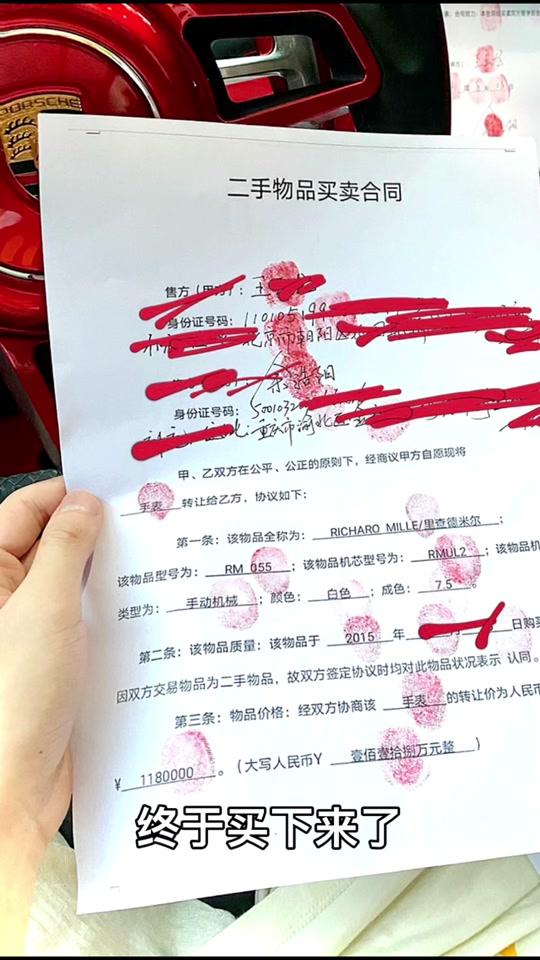 PORSCHE
二手物品买卖合同
售方（甲方）：王
身份证号码：110105199
北京市朝阳区
身份证号码：500103
重庆市
甲、乙双方在公平、公正的原则下，经商议甲方自愿现将
手表 转让给乙方，协议如下：
第一条：该物品全称为： RICHARO MILLE/里查德米尔 ；
该物品型号为： RM 055 ；该物品机芯型号为： RMUL2 ；该物品机
类型为： 手动机械 ；颜色： 白色 ；成色： 7.5 %
第二条：该物品质量：该物品于 2015 年 日购买
因双方交易物品为二手物品，故双方签定协议时均对此物品状况表示 认同。
第三条：物品价格：经双方协商该 手表 的转让价为人民币
¥ 1180000 。（大写人民币Y 壹佰壹拾捌万元整 ）
终于买下来了